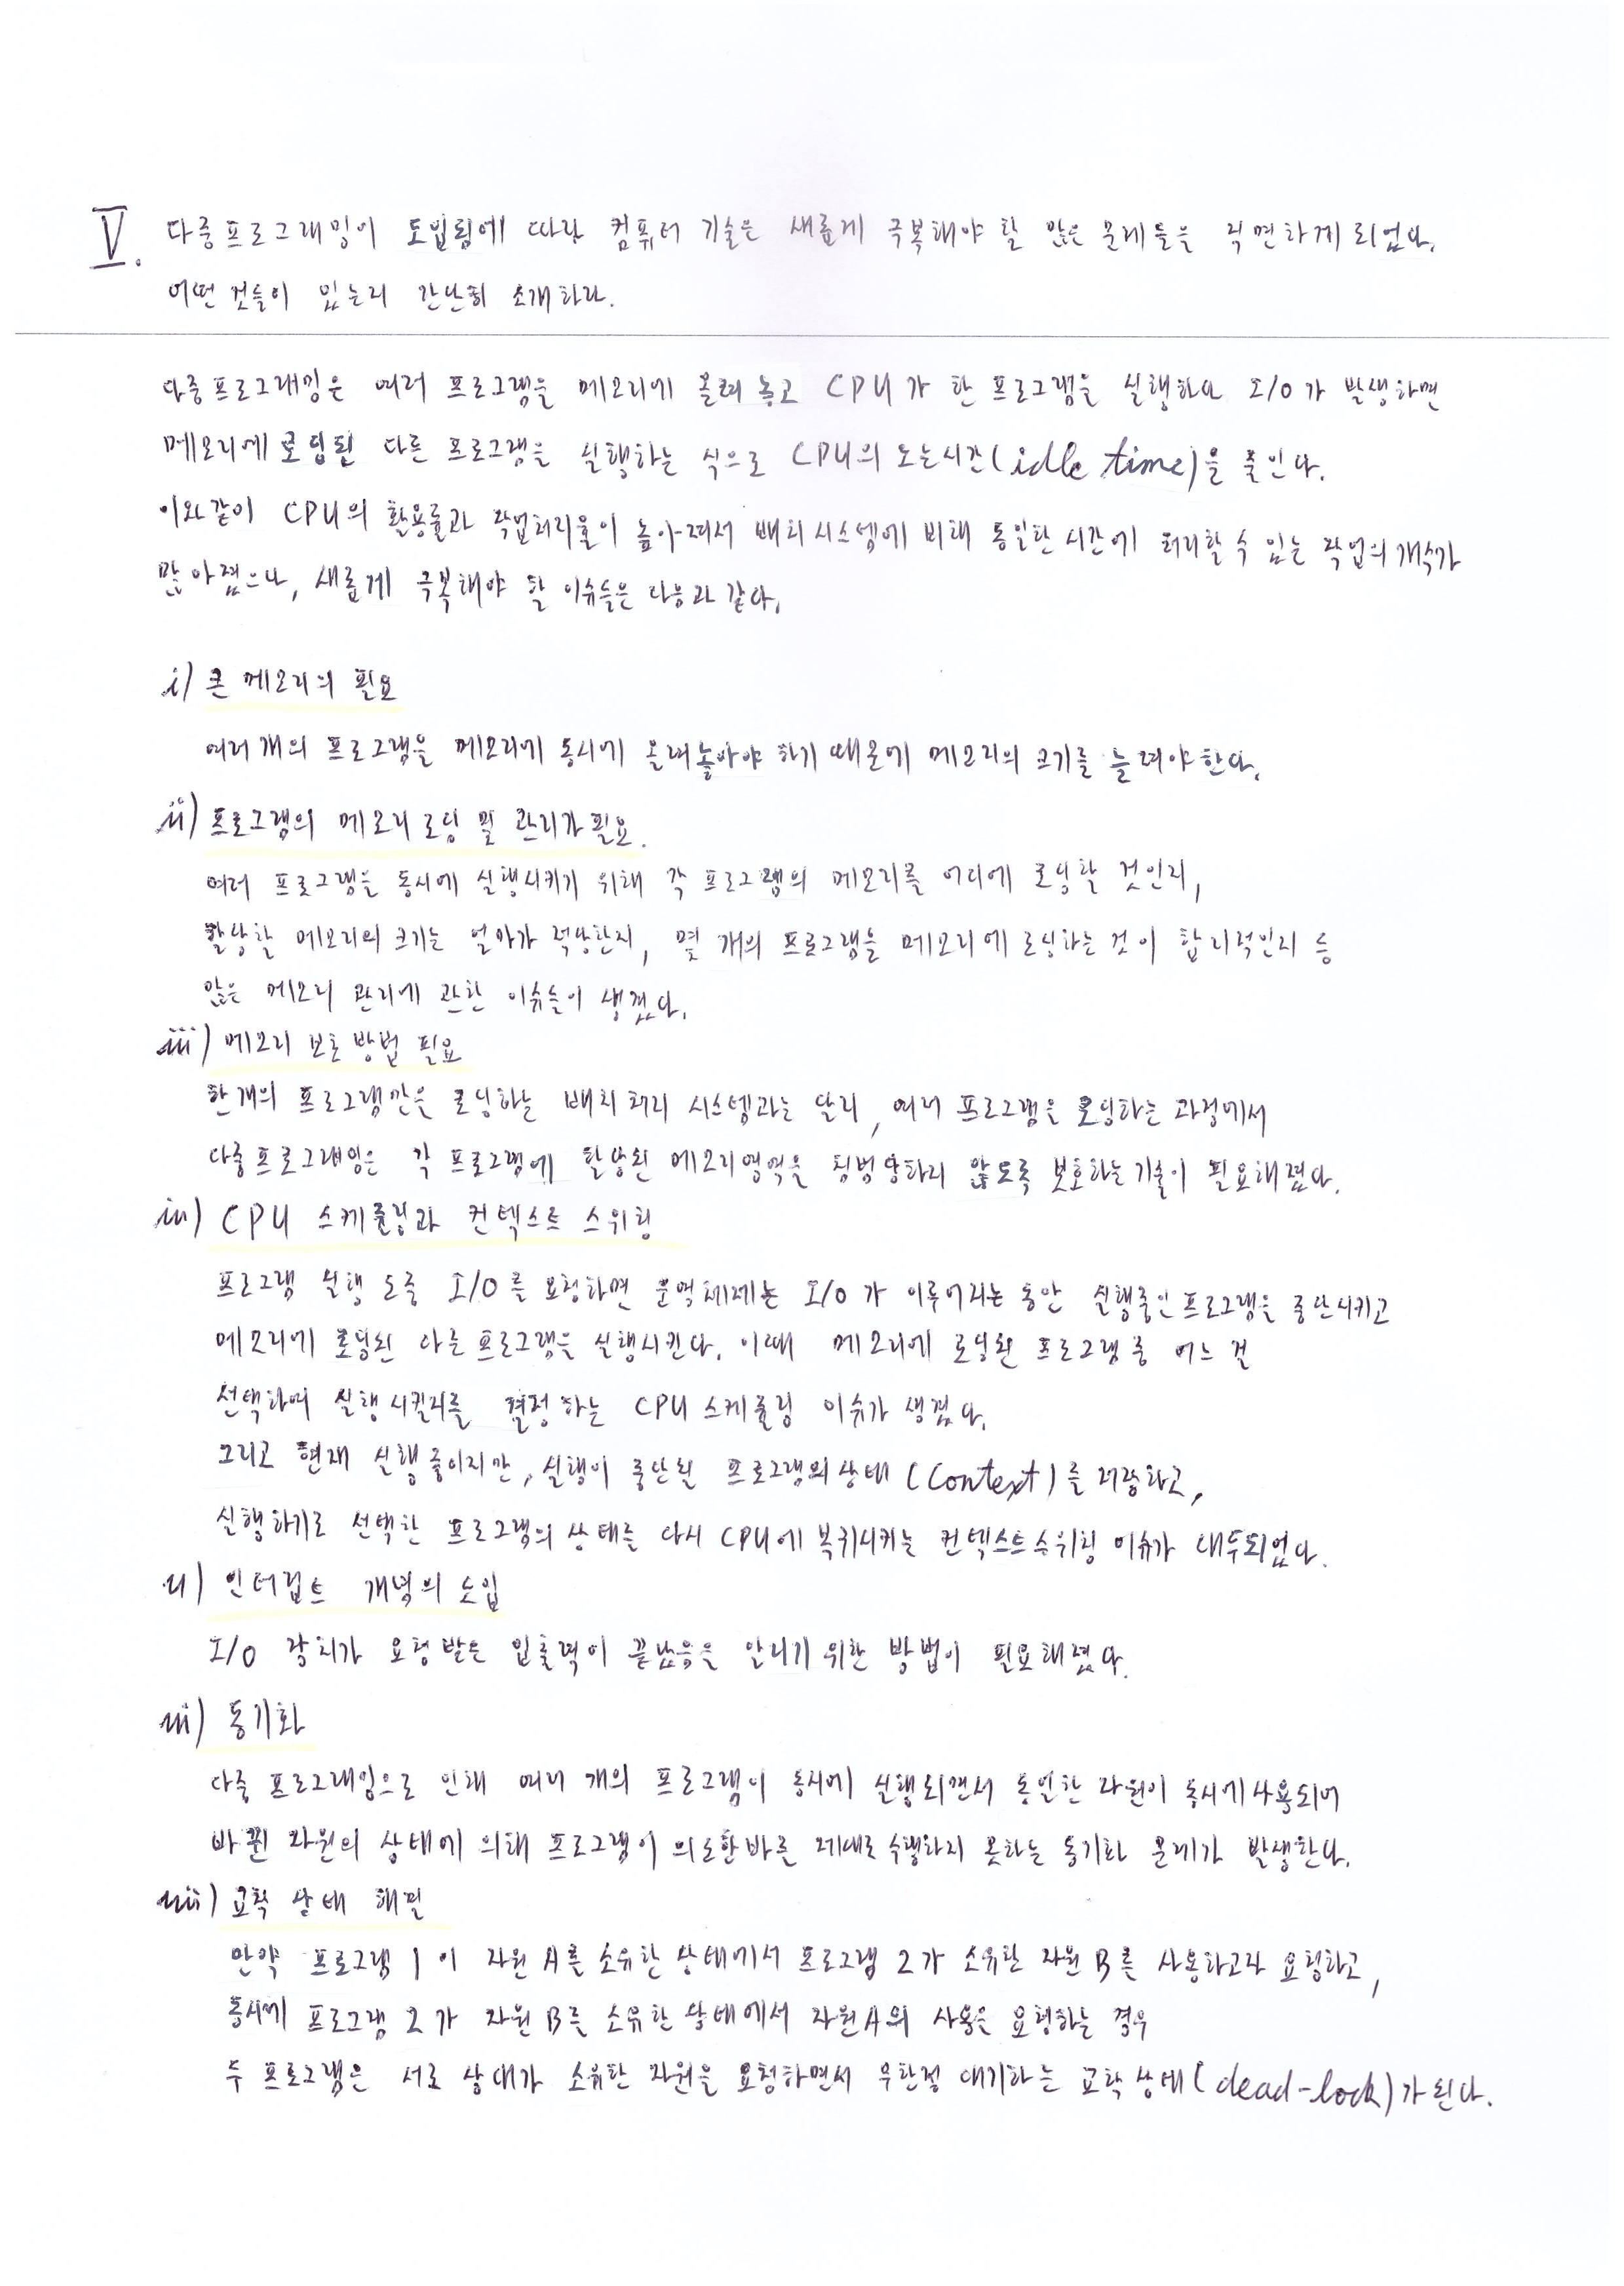 V. 다중프로그래밍이 도입됨에 따라 컴퓨터 기술은 새롭게 극복해야 할 많은 문제들을 직면하게 되었다.
어떤 것들이 있는지 간단히 소개하라.
다중프로그래밍은 여러 프로그램을 메모리에 올려 놓고 CPU가 한 프로그램을 실행하다 I/O가 발생하면
메모리에 로딩된 다른 프로그램을 실행하는 식으로 CPU의 노는시간(idle time)을 줄인다.
이와같이 CPU의 활용률과 작업처리율이 높아져서 배치시스템에 비해 동일한 시간에 처리할 수 있는 작업의 개수가
많아졌으나, 새롭게 극복해야 할 이슈들은 다음과 같다.
i) 큰 메모리의 필요
여러개의 프로그램을 메모리에 동시에 올려놓아야 하기 때문에 메모리의 크기를 늘려야한다.
ii) 프로그램의 메모리 로딩 및 관리가 필요.
여러 프로그램을 동시에 실행시키기 위해 각 프로그램의 메모리를 어디에 로딩할 것인지,
할당할 메모리의 크기는 얼마가 적당한지, 몇 개의 프로그램을 메모리에 로딩하는 것이 합리적인지 등
많은 메모리 관리에 관한 이슈들이 생겼다.
iii) 메모리 보호 방법 필요
한개의 프로그램만은 로딩하는 배치처리 시스템과는 달리, 여러 프로그램을 로딩하는 과정에서
다중프로그래밍은 각 프로그램에 할당된 메모리영역을 침범당하지 않도록 보호하는 기술이 필요해졌다.
iv) CPU 스케쥴링과 컨텍스트 스위칭
프로그램 실행 도중 I/O를 요청하면 운영체제는 I/O가 이루어지는 동안 실행중인 프로그램을 중단시키고
메모리에 로딩된 다른 프로그램을 실행시킨다. 이때 메모리에 로딩된 프로그램 중 어느 걸
선택하여 실행시킬지를 결정하는 CPU 스케쥴링 이슈가 생겼다.
그리고 현재 실행중이지만, 실행이 중단된 프로그램의 상태(Context)를 저장하고,
실행하기로 선택한 프로그램의 상태를 다시 CPU에 복귀시키는 컨텍스트스위칭 이슈가 대두되었다.
v) 인터럽트 개념의 도입
I/O 장치가 요청받은 입출력이 끝났음을 알리기 위한 방법이 필요해졌다.
vi) 동기화
다중 프로그래밍으로 인해 여러 개의 프로그램이 동시에 실행되면서 동일한 자원이 동시에 사용되어
바뀐 자원의 상태에 의해 프로그램이 의도한바를 제대로 수행하지 못하는 동기화 문제가 발생한다.
vii) 교착 상태 해결
만약 프로그램 1이 자원 A를 소유한 상태에서 프로그램 2가 소유한 자원 B를 사용하고자 요청하고,
동시에 프로그램 2가 자원 B를 소유한 상태에서 자원A의 사용을 요청하는 경우
두 프로그램은 서로 상대가 소유한 자원을 요청하면서 무한정 대기하는 교착상태(dead-lock)가 된다.